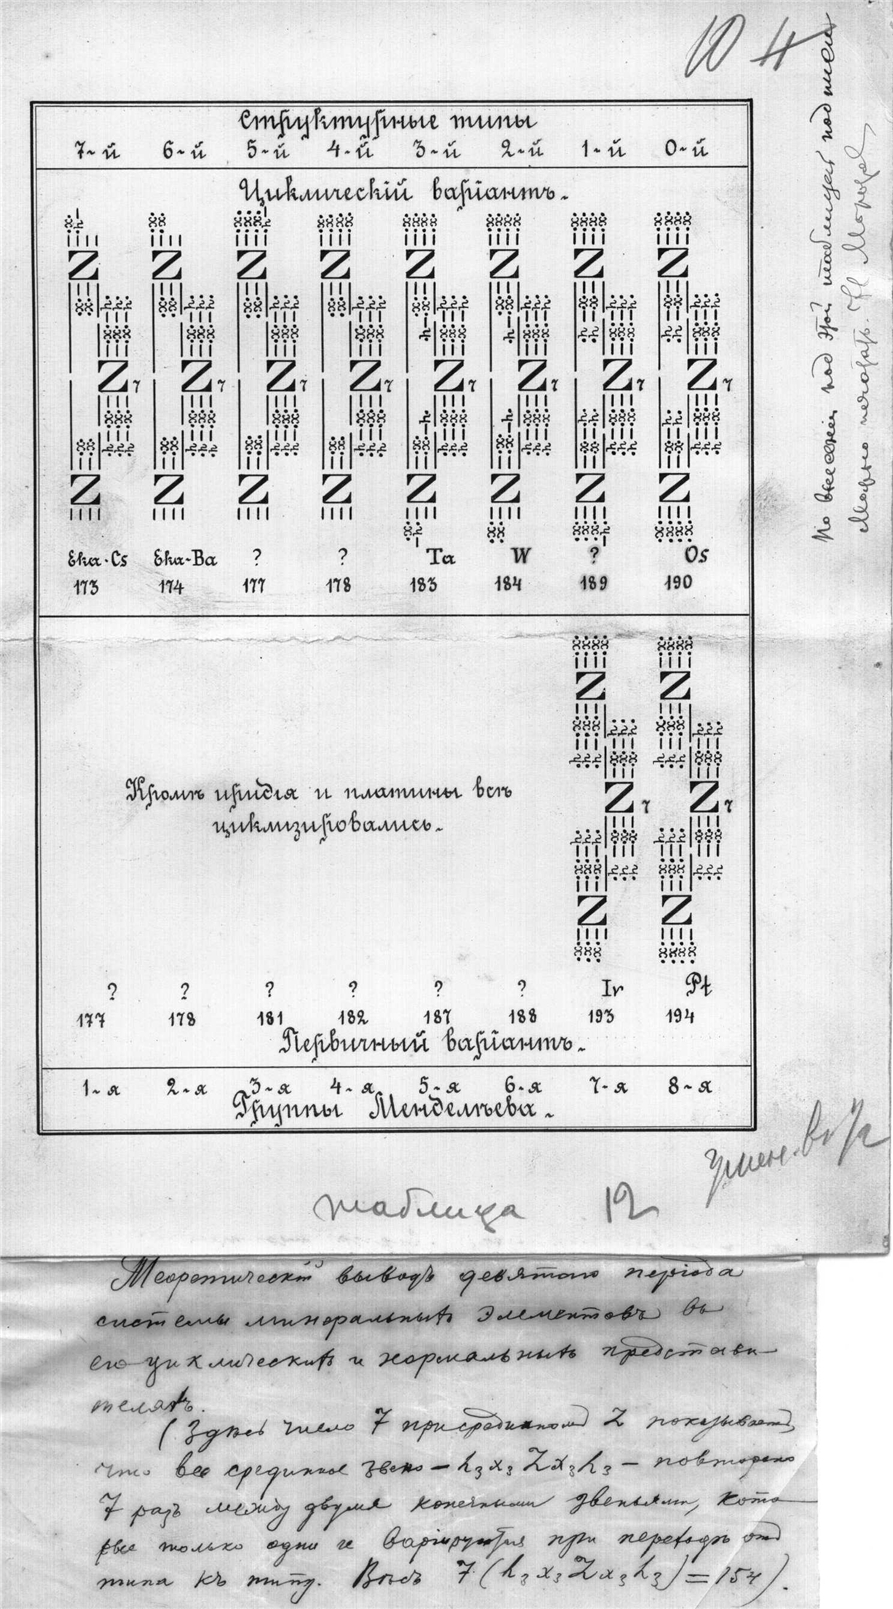 10 
Структурные типы
7-й 6-й 5-й 4-й 3-й 2-й 1-й 0-й
Циклическій варіантъ.
Z Z Z Z Z Z Z Z
Z7 Z7 Z7 Z7 Z7 Z7 Z7 Z7
Z Z Z Z Z Z Z Z
Eka-Cs Eka-Ba ? ? Ta W ? Os
173 174 177 178 183 184 189 190
Z Z
Кромѣ иридія и платины всѣ
циклизировались.
Z7 Z7
Z Z
? ? ? ? ? ? Ir Pt
177 178 181 182 187 188 193 194
Первичный варіантъ.
1-я 2-я 3-я 4-я 5-я 6-я 7-я 8-я
Группы Менделѣева.
таблица 12
под этой таблицей подписи
Можно печатать. Н Морозов
Теоретическій выводъ девятаго періода
системы минеральныхъ элементовъ въ
его циклическихъ и нормальныхъ представи-
теляхъ.
(Здѣсь число 7 при срединномъ Z показываетъ,
что все срединное звено — h3x3Zx3h3 — повторено
7 разъ между двумя конечными звеньями, кото-
рые только одни и варіируются при переходѣ отъ
типа къ типу. Вѣсъ 7(h3x3Zx3h3)=154).